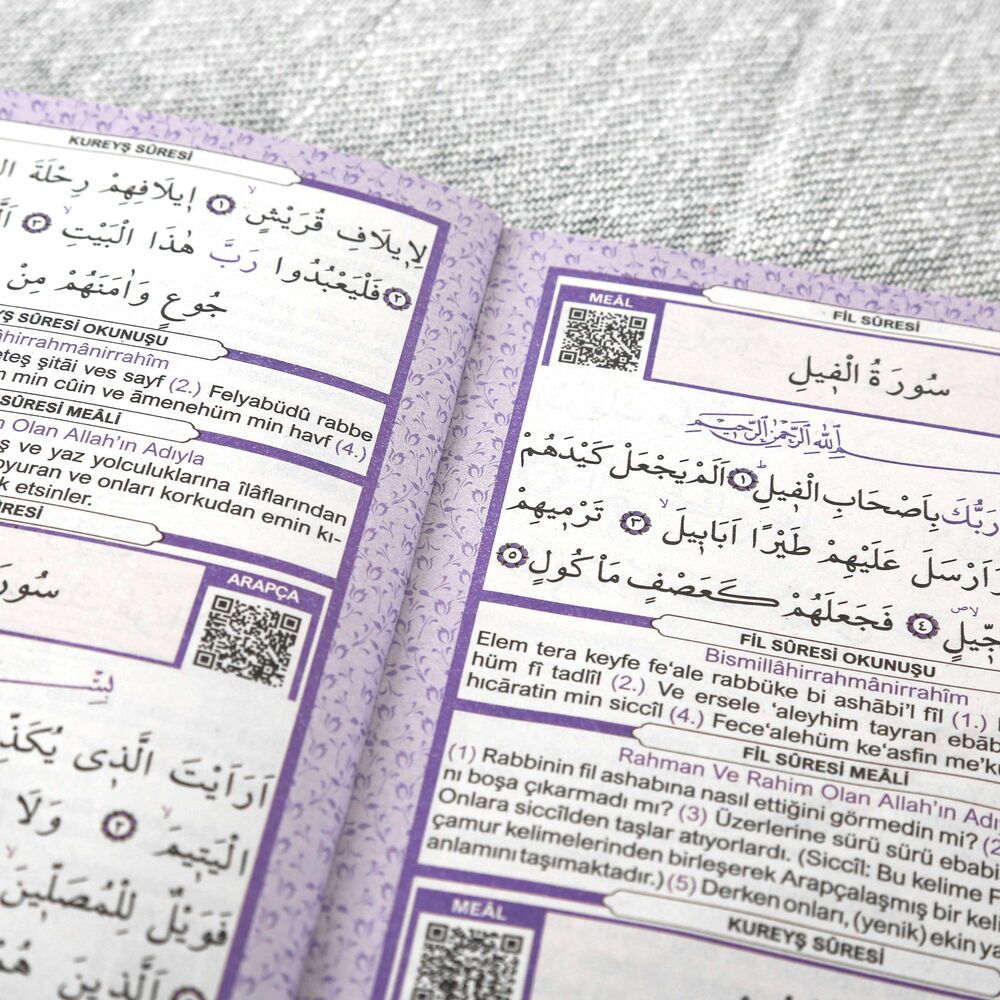 KUREYŞ SÛRESİ
لِا۪يلَافِ قُرَيْشٍۙ ١ ا۪يلَافِهِمْ رِحْلَةَ
٢ فَلْيَعْبُدُوا رَبَّ هٰذَا الْبَيْتِۙ ٣
جُوعٍ وَاٰمَنَهُمْ مِنْ
SÛRESİ OKUNUŞU
şitâi ves sayf (2.) Felyabüdû rabbe
min cûin ve âmenehüm min havf (4.)
SÛRESİ MEÂLİ
Olan Allah'ın Adıyla
ve yaz yolculuklarına îlâflarından
ve onları korkudan emin kı-
etsinler.
ARAPÇA
اَرَاَيْتَ الَّذ۪ى
الْيَت۪يمَۙ ٢ وَلَا
فَوَيْلٌ لِلْمُصَلّ۪ينَۙ
اَلَّذ۪ينَ
FİL SÛRESİ
MEÂL
سُورَةُ الْف۪يلِ
رَبُّكَ بِاَصْحَابِ الْف۪يلِۜ ١ اَلَمْ يَجْعَلْ كَيْدَهُمْ
وَاَرْسَلَ عَلَيْهِمْ طَيْرًا اَبَاب۪يلَۙ ٣ تَرْم۪يهِمْ
٤ فَجَعَلَهُمْ كَعَصْفٍ مَأْكُولٍ ٥
FİL SÛRESİ OKUNUŞU
Bismillâhirrahmânirrahîm
Elem tera keyfe fe'ale rabbüke bi ashâbi'l fîl (1.)
hüm fî tadlîl (2.) Ve ersele 'aleyhim tayran
hıcâratin min siccîl (4.) Fece'alehüm ke'asfin
FİL SÛRESİ MEÂLİ
Rahman Ve Rahim Olan Allah'ın
(1) Rabbinin fil ashabına nasıl ettiğini görmedin mi?
nı boşa çıkarmadı mı? (3) Üzerlerine sürü sürü
Onlara siccîlden taşlar atıyorlardı. (Siccîl: Bu kelime
çamur kelimelerinden birleşerek Arapçalaşmış bir
anlamını taşımaktadır.) (5) Derken onları, (yenik) ekin
KUREYŞ SÛRESİ
MEÂL